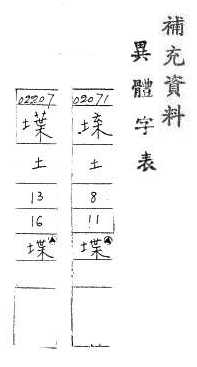 補充資料
異體字表
02071
土
8
11
堞
02207
土
13
16
堞